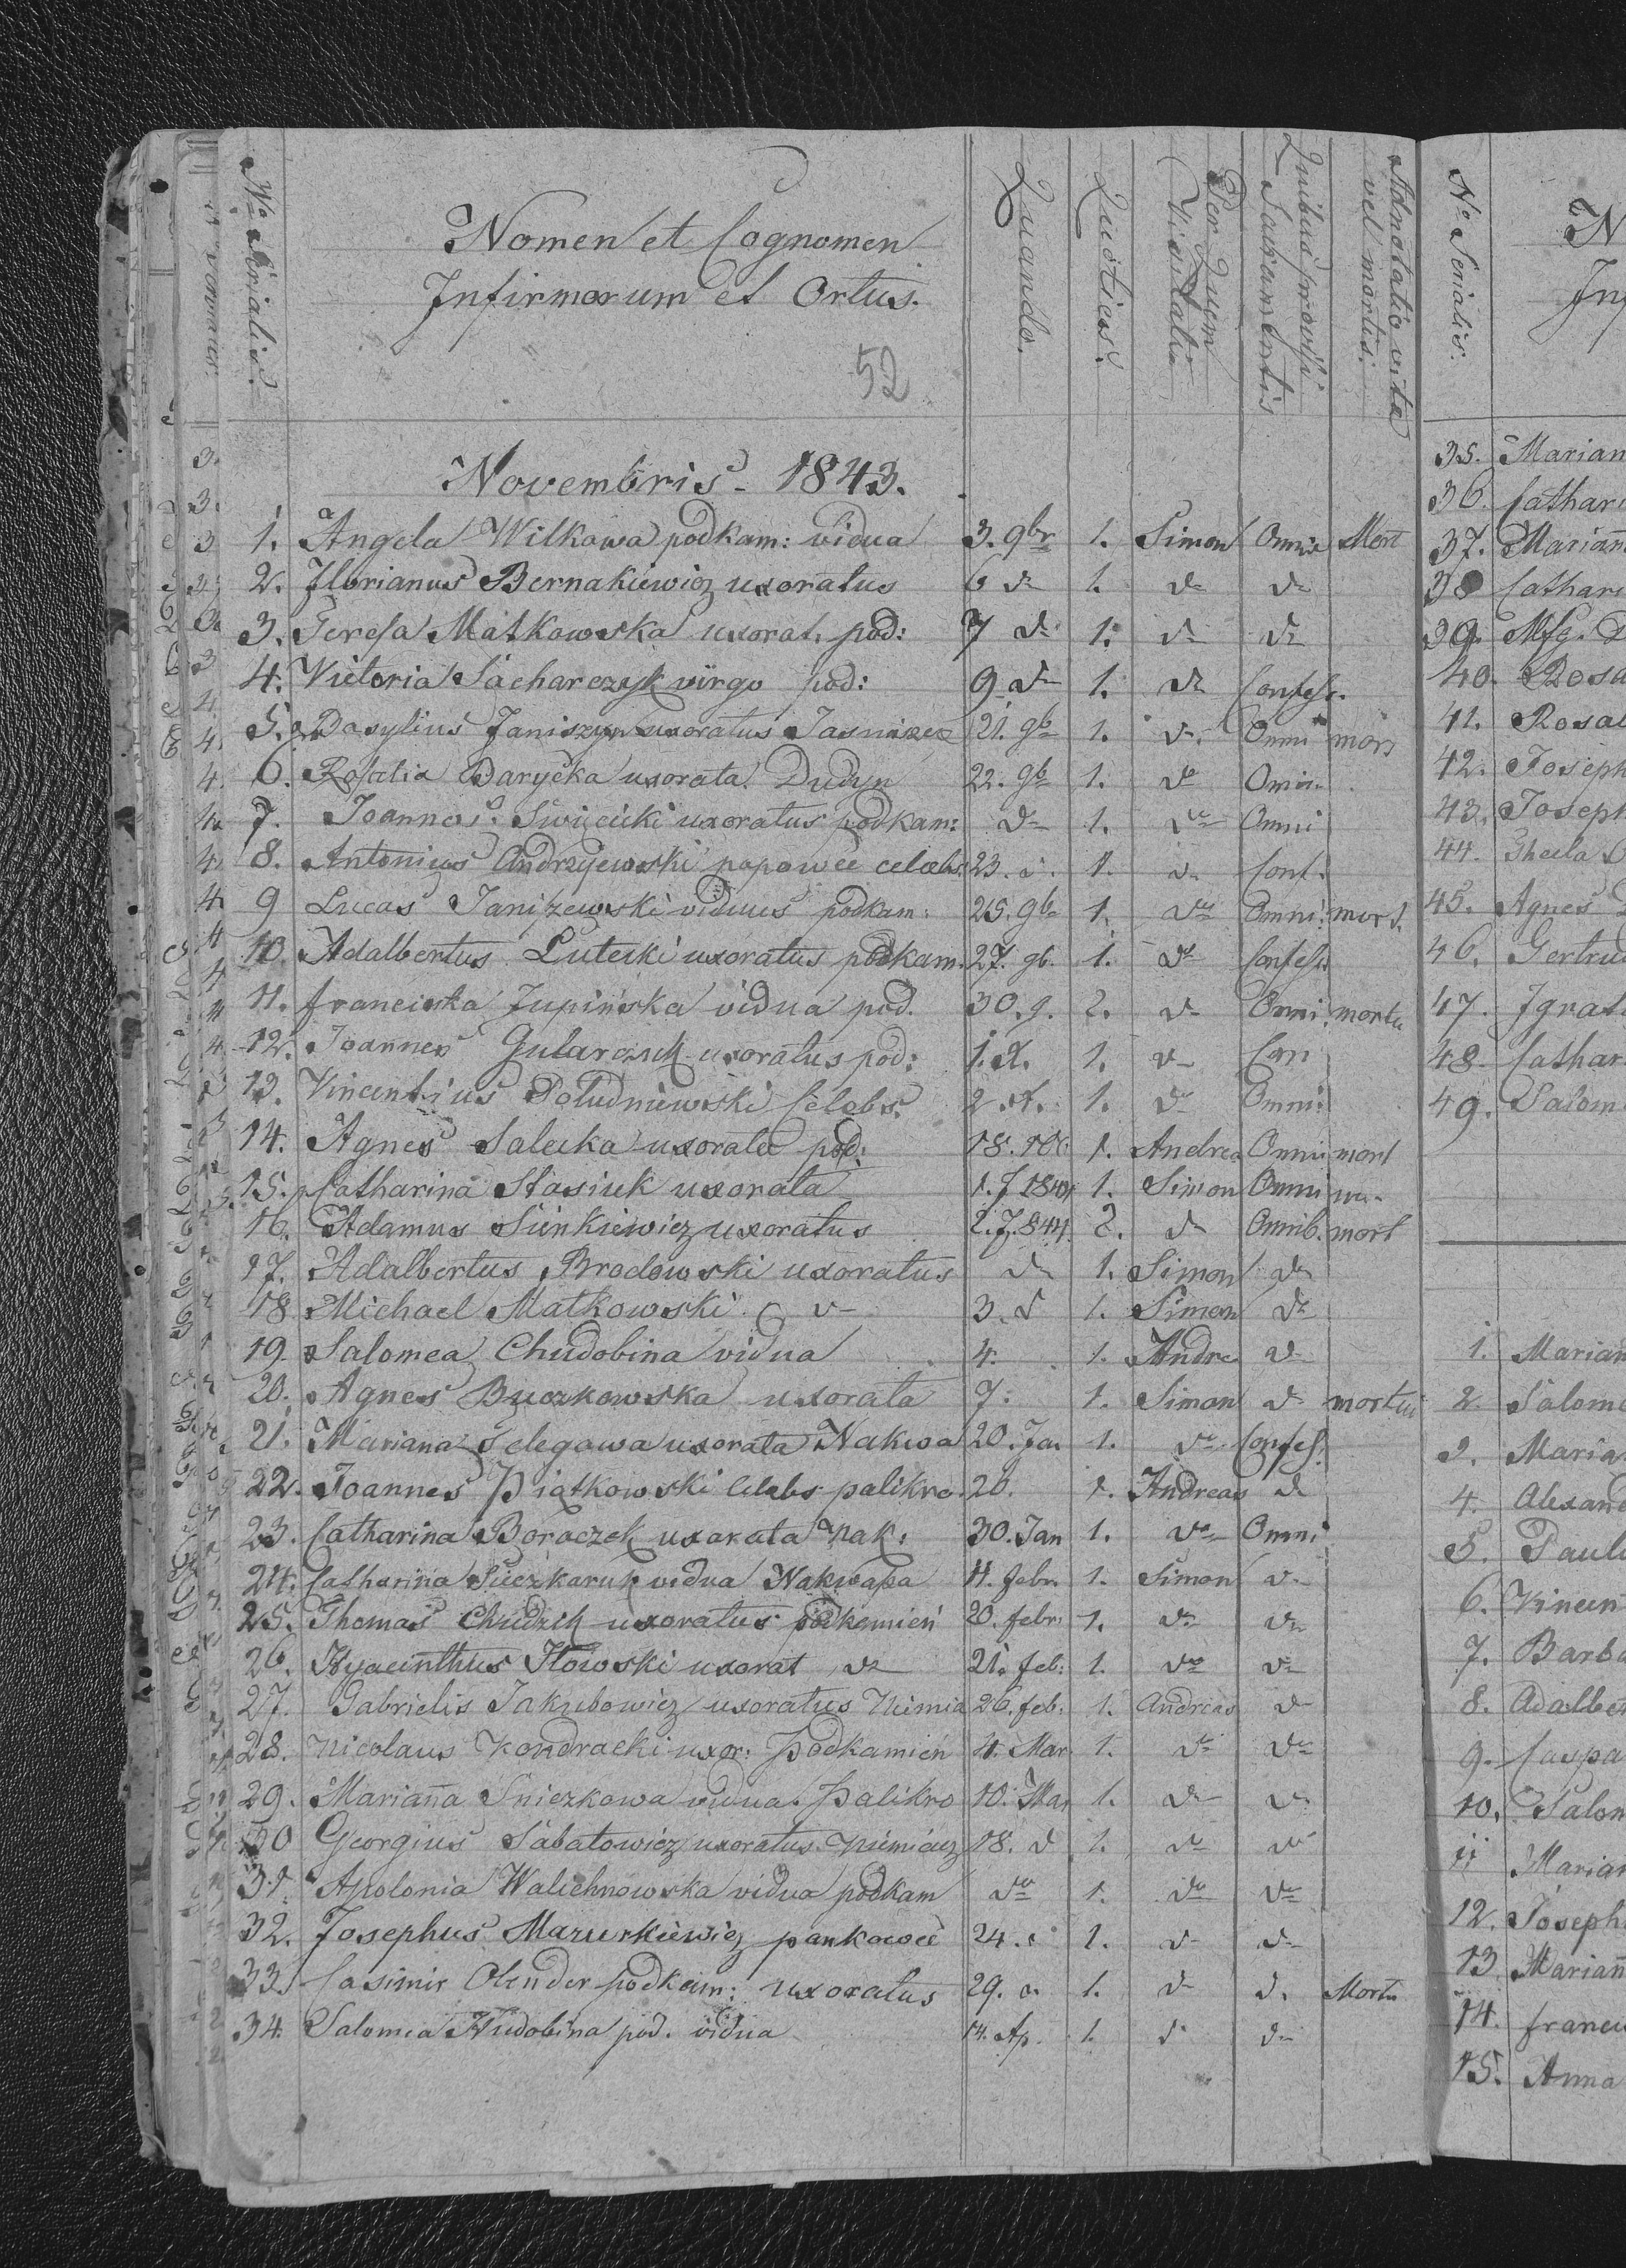 Nro Serialis.
Nomen et Cognomen
Infirmorum et Ortus.
Quando.
Quoties.
Per Quem
Visitatio
Quibus provisi
Sacramentis
Adnotatio vitæ
vel mortis.
52
Novembris - 1843.
1. Angela Wilkowa podkam: vidua 3. 9br 1. Simon Omnia Mort
2. Florianus Bernakiewicz uxoratus 6 do 1. do do
3. Teresa Matkowska uxorat. pod: 7 do 1. do do
4. Victoria Sacharczyk virgo pod: 9 do 1. do Confess.
5. Basylius Janiszyn uxoratus 21. 9b 1. do Omni mors
6. Rosalia Daryčka uxorata Dudyn 22. 9b 1. do Omni
7. Joannes Swiecicki uxoratus podkam: do 1. do Omni
8. Antonius Andrzejewski popowce celebs. 23. 1. do Conf.
9 Lucas Janiżewski viduus podkam: 25. 9b 1. do Omni. mort.
10. Adalbertus Lutecki uxoratus podkam. 27. 9b. 1. do Confess
11. franciska Zupińska vidua pod. 30. 9. 2. do Omni. mortu
12. Joannes Gularczuk uxoratus pod: 1. X. 1. do Con
13. Vincentius Poludniewski Celebs. 2. X. 1. do Omni
14. Agnes Salecka uxorata pod: 18. 1. Andrea Omni mort
15. Catharina Stasiuk uxorata 1. J 1844 1. Simon Omni
16. Adamus Sinkiewicz uxoratus 2. J. 844. 2. do Omnib. mort
17. Adalbertus Brodowski uxoratus do 1. Simon do
18 Michael Matkowski 3. d 1. Simon do
19. Salomea Chudobina vidua 4. 1. Andre do
20. Agnes Buczkowska uxorata 7. 1. Simon do mortui
21. Mariana Selegowa uxorata Nakwa 20. Jan 1. do Confes.
22. Joannes Piątkowski Celebs palikro 20. 1. Andreas do
23. Catharina Boraczek uxorata Nak: 30. Jan 1. do Omni
24. Catharina Suczkaruk vidua Nakwasza 11. febr. 1. Simon do
25. Thomas Chudzik uxoratus podkamień 20. febr: 1. do do
26. Hyacinthus Iłowski uxorat do 21. feb: 1. do do
27. Gabrielis Jakubowicz uxoratus Nimia 26. feb: 1. Andreas do
28. Nicolaus Kondracki uxor: Podkamień 4. Mar 1. do do
29. Marianna Sniezkowa vidua Palikro 10. Mar 1. do do
30 Georgius Sabatowicz uxoratus Nimiacz 18. d 1. do do
31. Apolonia Walichnowska vidua podkam do 1. do do
32. Josephus Mazurkiewicz pankowce 24. 1. do do
33. Casimir Olender podkam: uxoratus 29. 1. do d. Mortu
34. Salomea Hudobina pod. vidua 14. Ap. 1. d do
No Serialis.
N
Inf
35. Marian
36. Cathari
37. Mariañ
38 Cathari
39.
40. Rosa
41. Rosal
42. Joseph
43. Joseph
44. Thecla
45. Agnes
46. Gertrud
47. Ignati
48. Cathar
49. Salom
1. Marian
2. Salome
3. Maria
4. Alexand
5. Paulu
6. Vincen
7. Barba
8. Adalber
9. Caspa
10. Salom
11 Marian
12. Joseph
13. Mariañ
14. franci
15. Anna